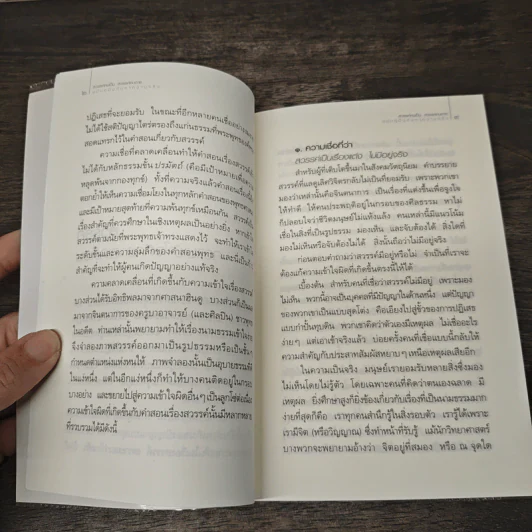 ปฏิเสธที่จะยอมรับ ในขณะที่อีกหลายคนเชื่ออย่าง
ไม่ได้ใช้สติปัญญาไตร่ตรองถึงแก่นธรรมที่พระพุทธองค์
สอดแทรกไว้ในคำสอนเกี่ยวกับสวรรค์
ความเชื่อที่คลาดเคลื่อนทำให้คำสอนเรื่องสวรรค์
ไม่ได้กับหลักธรรมชั้น ปรมัตถ์ (คือมีเป้าหมายเพื่อ
หลุดพ้นจากกองทุกข์) ทั้งที่ความจริงแล้วคำสอนเรื่อง
ตอกย้ำให้เห็นความเชื่อมโยงในทุกหลักคำสอนของ
และมีเป้าหมายสุดท้ายที่ความพ้นทุกข์เหมือนกัน สวรรค์
เรื่องสำคัญที่ควรศึกษาในเชิงเหตุผลเป็นอย่างยิ่ง หากเข้าใจ
สวรรค์ตามนัยที่พระพุทธเจ้าทรงแสดงไว้ จะทำให้เราเข้าใจ
ระดับชั้นและความลุ่มลึกของคำสอนพุทธ และมีเป็น
สำคัญที่จะทำให้ผู้คนเกิดปัญญาอย่างแท้จริง
ความคลาดเคลื่อนที่เกิดขึ้นกับความเข้าใจเรื่องสวรรค์
บางส่วนได้รับอิทธิพลมาจากศาสนาฮินดู บางส่วนก็เป็น
มาจากจินตนาการของครูบาอาจารย์ (และศิลปิน) ชาวพุทธ
ในอดีต ท่านเหล่านั้นพยายามทำให้เรื่องนามธรรมเข้าใจ
จึงจำลองภาพสวรรค์ออกมาเป็นรูปธรรมหรือเป็นชั้น
กำหนดตำแหน่งแห่งหนให้ ภาพจำลองนั้นเป็นอุบายธรรม
ในแง่หนึ่ง แต่ในอีกแง่หนึ่งก็ทำให้บางคนติดอยู่ในกรอบ
บางอย่าง และขยายไปสู่ความเข้าใจผิดอื่นๆ เป็นลูกโซ่ต่อเนื่อง
ความเข้าใจผิดที่เกิดขึ้นกับคำสอนเรื่องสวรรค์นั้นมีหลากหลาย
ที่รวบรวมได้มีดังนี้
๑. ความเชื่อที่ว่า
สวรรค์เป็นเรื่องแต่ง ไม่มีอยู่จริง
สำหรับผู้ที่เติบโตขึ้นมาในสังคมวัตถุนิยม คำบรรยาย
สวรรค์ที่แลดูเลิศวิจิตรกลับไม่เป็นที่ยอมรับ เพราะพวกเขา
มองว่าเหล่านั้นคือจินตนาการ เป็นเรื่องที่แต่งขึ้นเพื่อจูงใจ
ให้ทำดี ให้คนประพฤติอยู่ในกรอบของศีลธรรม หาไม่
ก็ปลอบใจว่าชีวิตมนุษย์ไม่แห้งแล้ง คนเหล่านี้มีแนวโน้ม
เชื่อในสิ่งที่เป็นรูปธรรม มองเห็น และจับต้องได้ สิ่งใดที่
มองไม่เห็นหรือจับต้องไม่ได้ สิ่งนั้นถือว่าไม่มีอยู่จริง
ก่อนตอบคำถามว่าสวรรค์มีอยู่หรือไม่ จำเป็นที่เราจะ
ต้องแก้ความเข้าใจผิดที่เกิดขึ้นตรงนี้ให้ได้
เบื้องต้น สำหรับคนที่เชื่อว่าสวรรค์ไม่มีอยู่ เพราะมอง
ไม่เห็น พวกนี้อาจเป็นบุคคลที่มีปัญญาในด้านหนึ่ง แต่ปัญญา
ของพวกเขาเป็นแบบสุดโต่ง คือเอียงไปสู่ขั้วของการปฏิเสธ
แบบกำปั้นทุบดิน พวกเขาคิดว่าตัวเองมีเหตุผล ไม่เชื่ออะไร
ง่ายๆ แต่เอาเข้าจริงแล้ว บ่อยครั้งคนที่เชื่อแบบนี้กลับให้
ความสำคัญกับประสาทสัมผัสหยาบๆ เหนือเหตุผลเสียอีก
ในความเป็นจริง มนุษย์เรายอมรับหลายสิ่งซึ่งมอง
ไม่เห็นโดยไม่รู้ตัว โดยเฉพาะคนที่คิดว่าตนเองฉลาด มี
เหตุผล ยิ่งศึกษาสูงก็ยิ่งข้องเกี่ยวกับเรื่องที่เป็นนามธรรมมาก
ง่ายที่สุดก็คือ เราทุกคนสำนึกรู้ในสิ่งรอบตัว เรารู้ได้เพราะ
เรามีจิต (หรือวิญญาณ) ซึ่งทำหน้าที่รับรู้ แม้นักวิทยาศาสตร์
บางพวกจะพยายามอ้างว่า จิตอยู่ที่สมอง หรือ ณ จุดใด